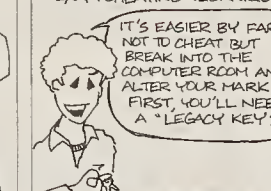 IT'S EASIER BY FAR
NOT TO CHEAT BUT
BREAK INTO THE
COMPUTER ROOM AN
ALTER YOUR MARK
FIRST, YOU'LL NEE
A "LEGACY KEY"